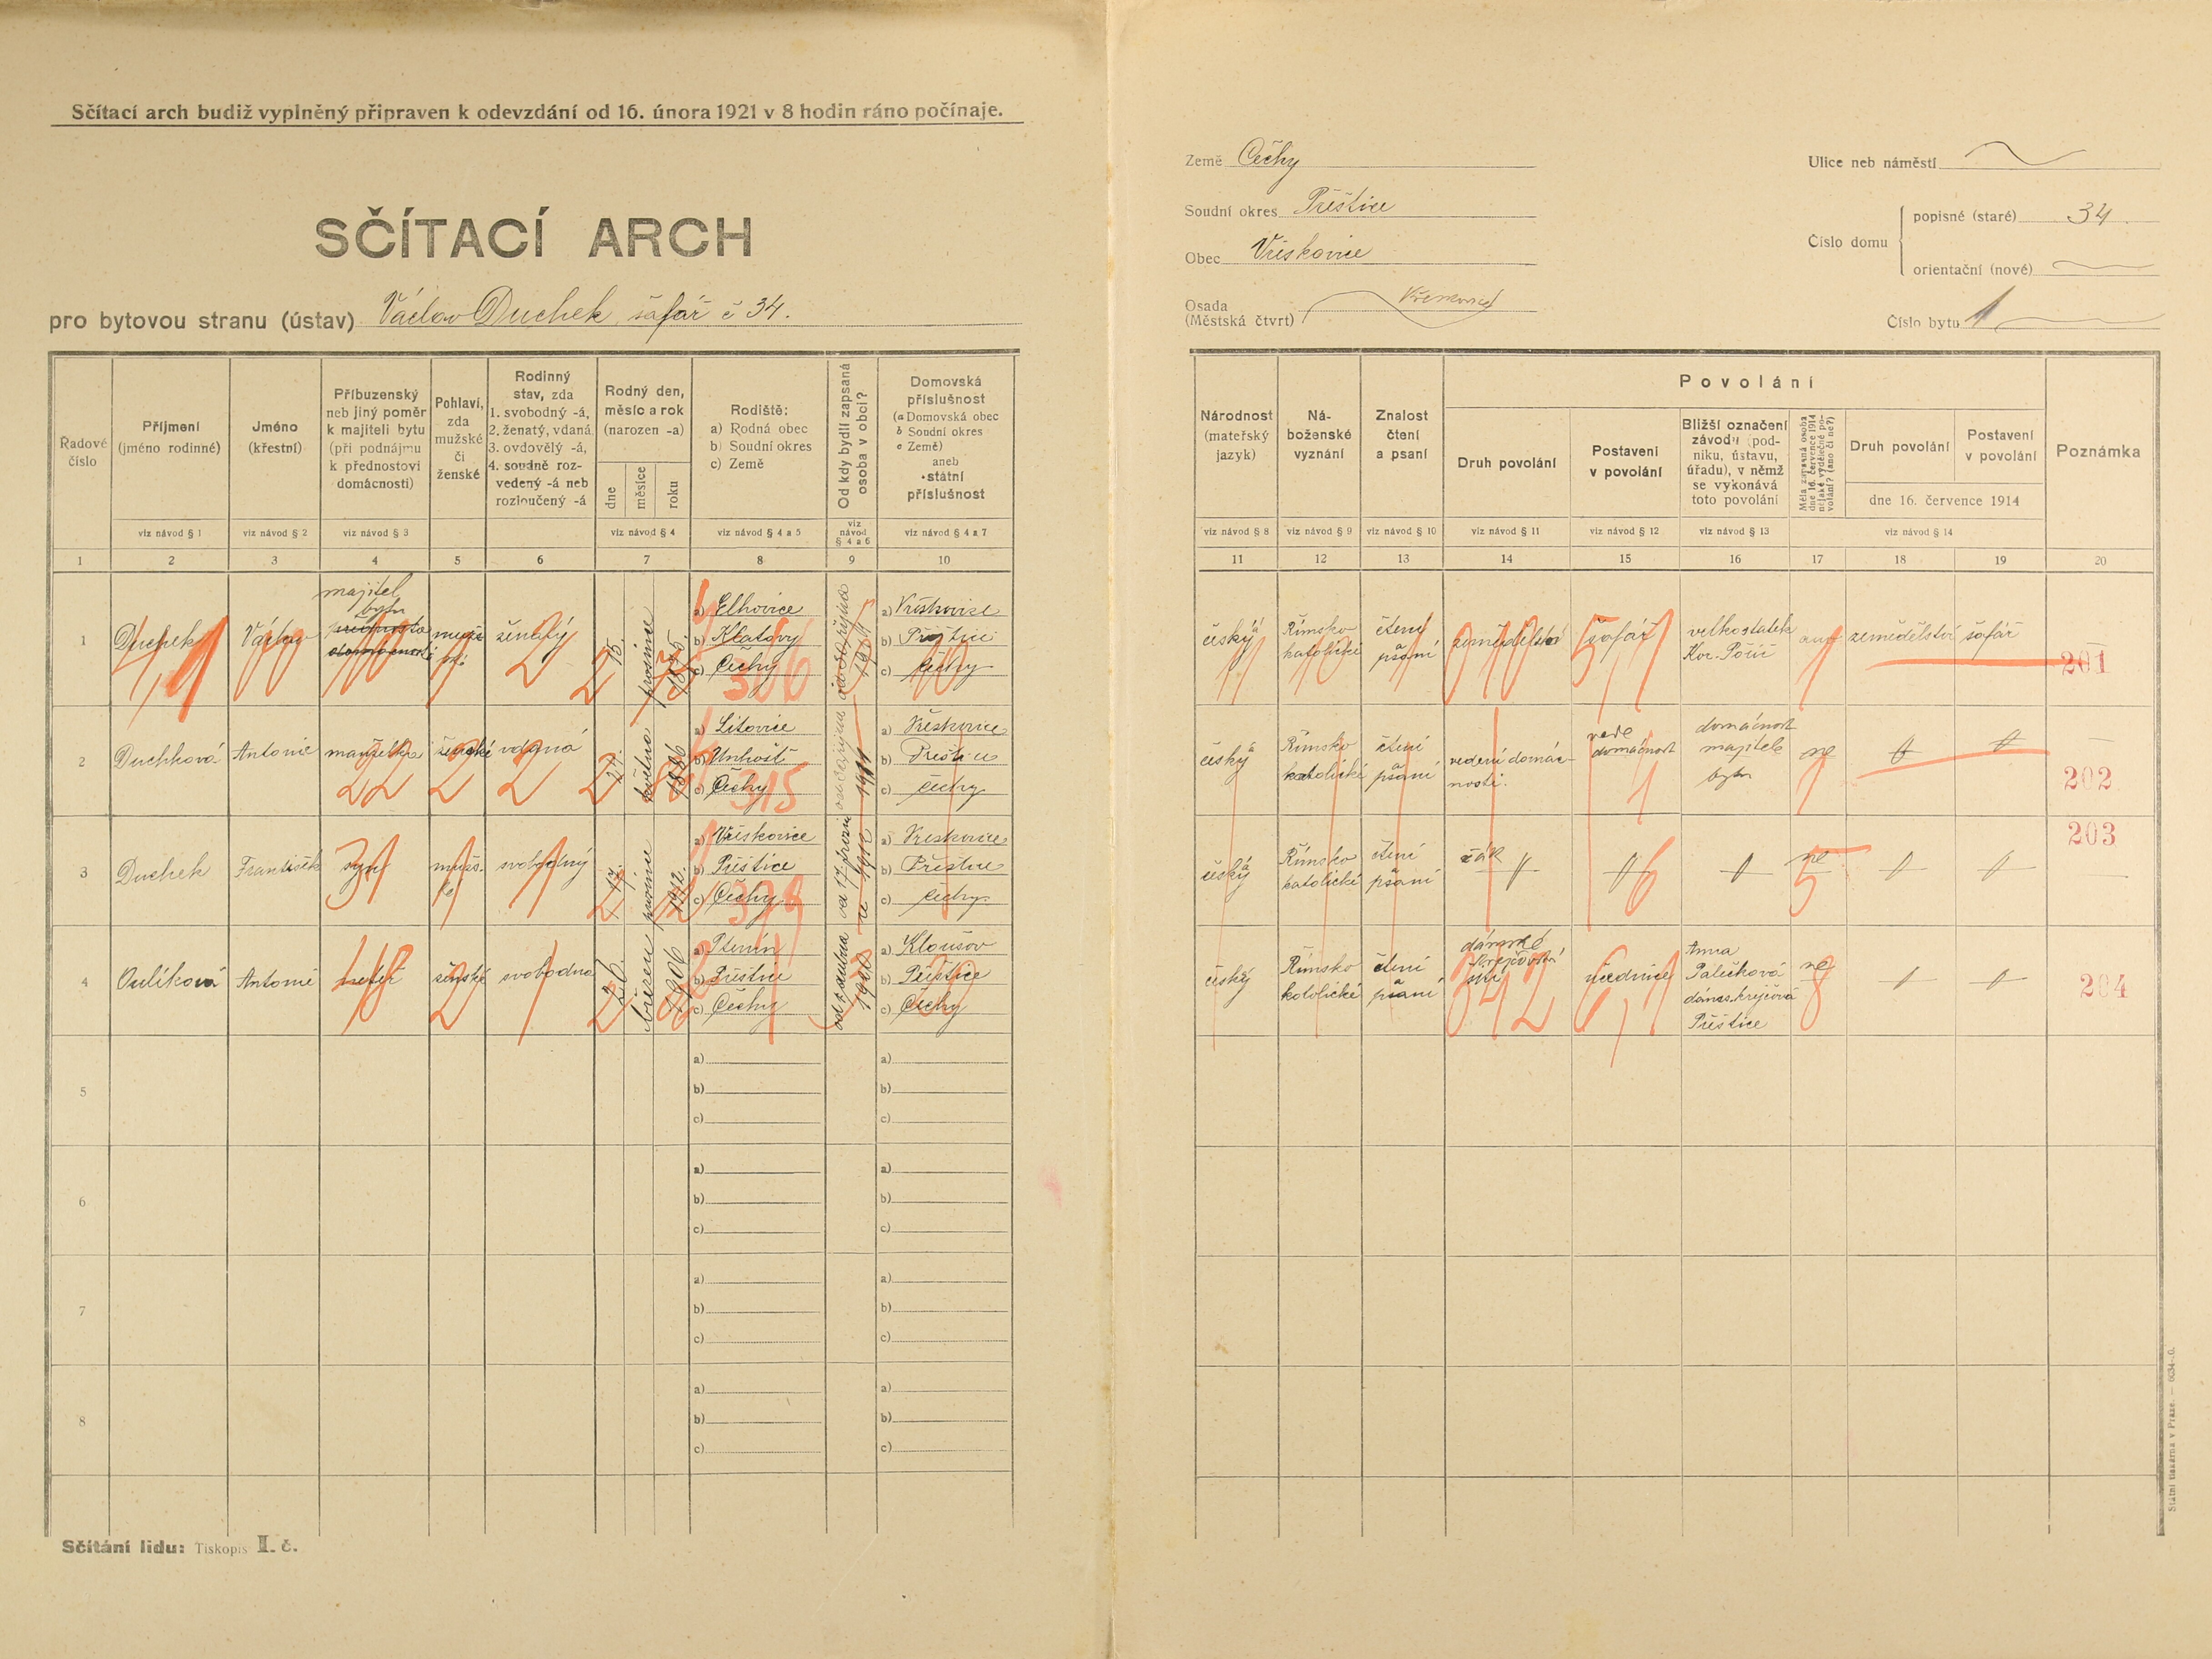 Sčítací arch budiž vyplněný připraven k odevzdání od 16. února 1921 v 8 hodin ráno počínaje.
SČÍTACÍ ARCH
pro bytovou stranu (ústav) Václav Duchek šafář č 34.
Země Čechy
Soudní okres Přeštice
Obec Vřeskovice
Osada
(Městská čtvrt)
Ulice neb náměstí
Číslo domu
popisné (staré) 34.
orientační (nové)
Číslo bytu 1
Řadové číslo
Příjmení
(jméno rodinné)
viz návod § 1
Jméno
(křestní)
viz návod § 2
Příbuzenský
neb jiný poměr
k majiteli bytu
(při podnájmu
k přednostovi
domácnosti)
viz návod § 3
Pohlaví,
zda
mužské
či
ženské
Rodinný
stav, zda
1. svobodný -á,
2. ženatý, vdaná
3. ovdovělý -á,
4. soudně roz-
vedený -á neb
rozloučený -á
Rodný den,
měsíc a rok
(narozen -a)
dne
měsíce
roku
viz návod § 4
Rodiště:
a) Rodná obec
b) Soudní okres
c) Země
viz návod § 4 a 5
Od kdy bydlí zapsaná
osoba v obci?
viz
návod
§ 4 a 6
Domovská
příslušnost
(a Domovská obec
b Soudní okres
c Země)
aneb
státní
příslušnost
viz návod § 4 a 7
Národnost
(mateřský
jazyk)
viz návod § 8
Ná-
boženské
vyznání
viz návod § 9
Znalost
čtení
a psaní
viz návod § 10
Povolání
Druh povolání
viz návod § 11
Postavení
v povolání
viz návod § 12
Bližší označení
závodu (pod-
niku, ústavu,
úřadu), v němž
se vykonává
toto povolání
viz návod § 13
Měla zapsaná osoba
dne 16. července 1914
nějaké výdělečné po-
volání? (ano či ne?)
Druh povolání
Postavení
v povolání
dne 16. července 1914
viz návod § 14
Poznámka
1 2 3 4 5 6 7 8 9 10 11 12 13 14 15 16 17 18 19 20
1 Duchek Václav
majitel
bytu
mužské
ženatý
15. prosince 1875.
a) Elhovice
b) Klatovy
c) Čechy
306
a) Vřeskovice
b) Přeštice
c) Čechy
český
Římsko
katolické
čtení
psaní
zemědělství
šafář
velkostatek
Kor. Poříč
ano
zemědělství
šafář
201
2 Duchková Antonie
manželka
ženské
vdaná
21. května 1886
a) Litovice
b) Unhošť
c) Čechy
315
a) Vřeskovice
b) Přeštice
c) Čechy
český
Římsko
katolické
čtení
psaní
vedení domác-
nosti.
vede
domácnost
domácnost
majitele
bytu
ne
202
3 Duchek František
syn
mužs-
ké
svobodný
17. prosince 1912.
a) Vřeskovice
b) Přeštice
c) Čechy
379
a) Vřeskovice
b) Přeštice
c) Čechy
český
Římsko
katolické
čtení
psaní
žák
ne
203
4 Oulíková Antonie
neteř
ženské
svobodna
26. březen 1906
a) Ptenín
b) Přeštice
c) Čechy
a) Kloušov
b) Přeštice
c) Čechy
český
Římsko
katolické
čtení
psaní
dámské
krejčovství
šití
učednice
Anna
Palečková
dáms. krejčová
Přeštice
ne
204
5 a)
b)
c)
a)
b)
c)
6 a)
b)
c)
a)
b)
c)
7 a)
b)
c)
a)
b)
c)
8 a)
b)
c)
a)
b)
c)
Sčítání lidu: Tiskopis II. č.
Státní tiskárna v Praze. — 6634-20.